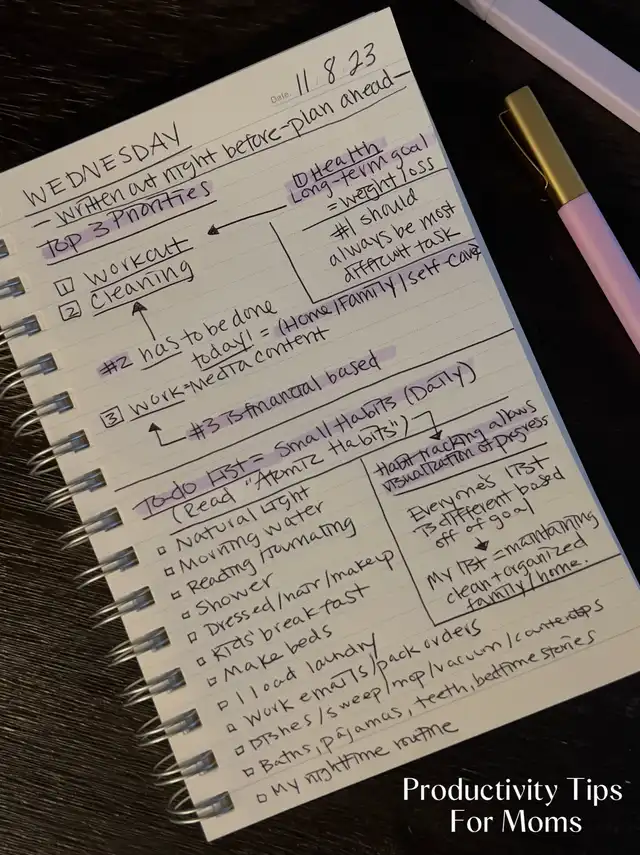 Date. 11 8 23
WEDNESDAY
- written out night before-plan ahead-
Top 3 Priorities
1 workout
2 Cleaning
① Health
Long-term goal
= weight loss
#1 should
always be most
difficult task
#2 has to be done
today! = (Home/Family/self-care)
3 work=Media content
#3 is financial based
To-do List = Small Habits (Daily)
(Read "Atomic Habits")
Habit tracking allows
visualization of progress
Everyone's list
is different based
off of goal
My list = maintaining
clean + organized
family/home.
Natural light
Morning water
Reading/Journaling
Shower
Dressed/hair/makeup
Kids' breakfast
Make beds
1 load laundry
Work emails/pack orders
Dishes/sweep/mop/vacuum/countertops
Baths, pajamas, teeth, bedtime stories
My nighttime routine
Productivity Tips
For Moms